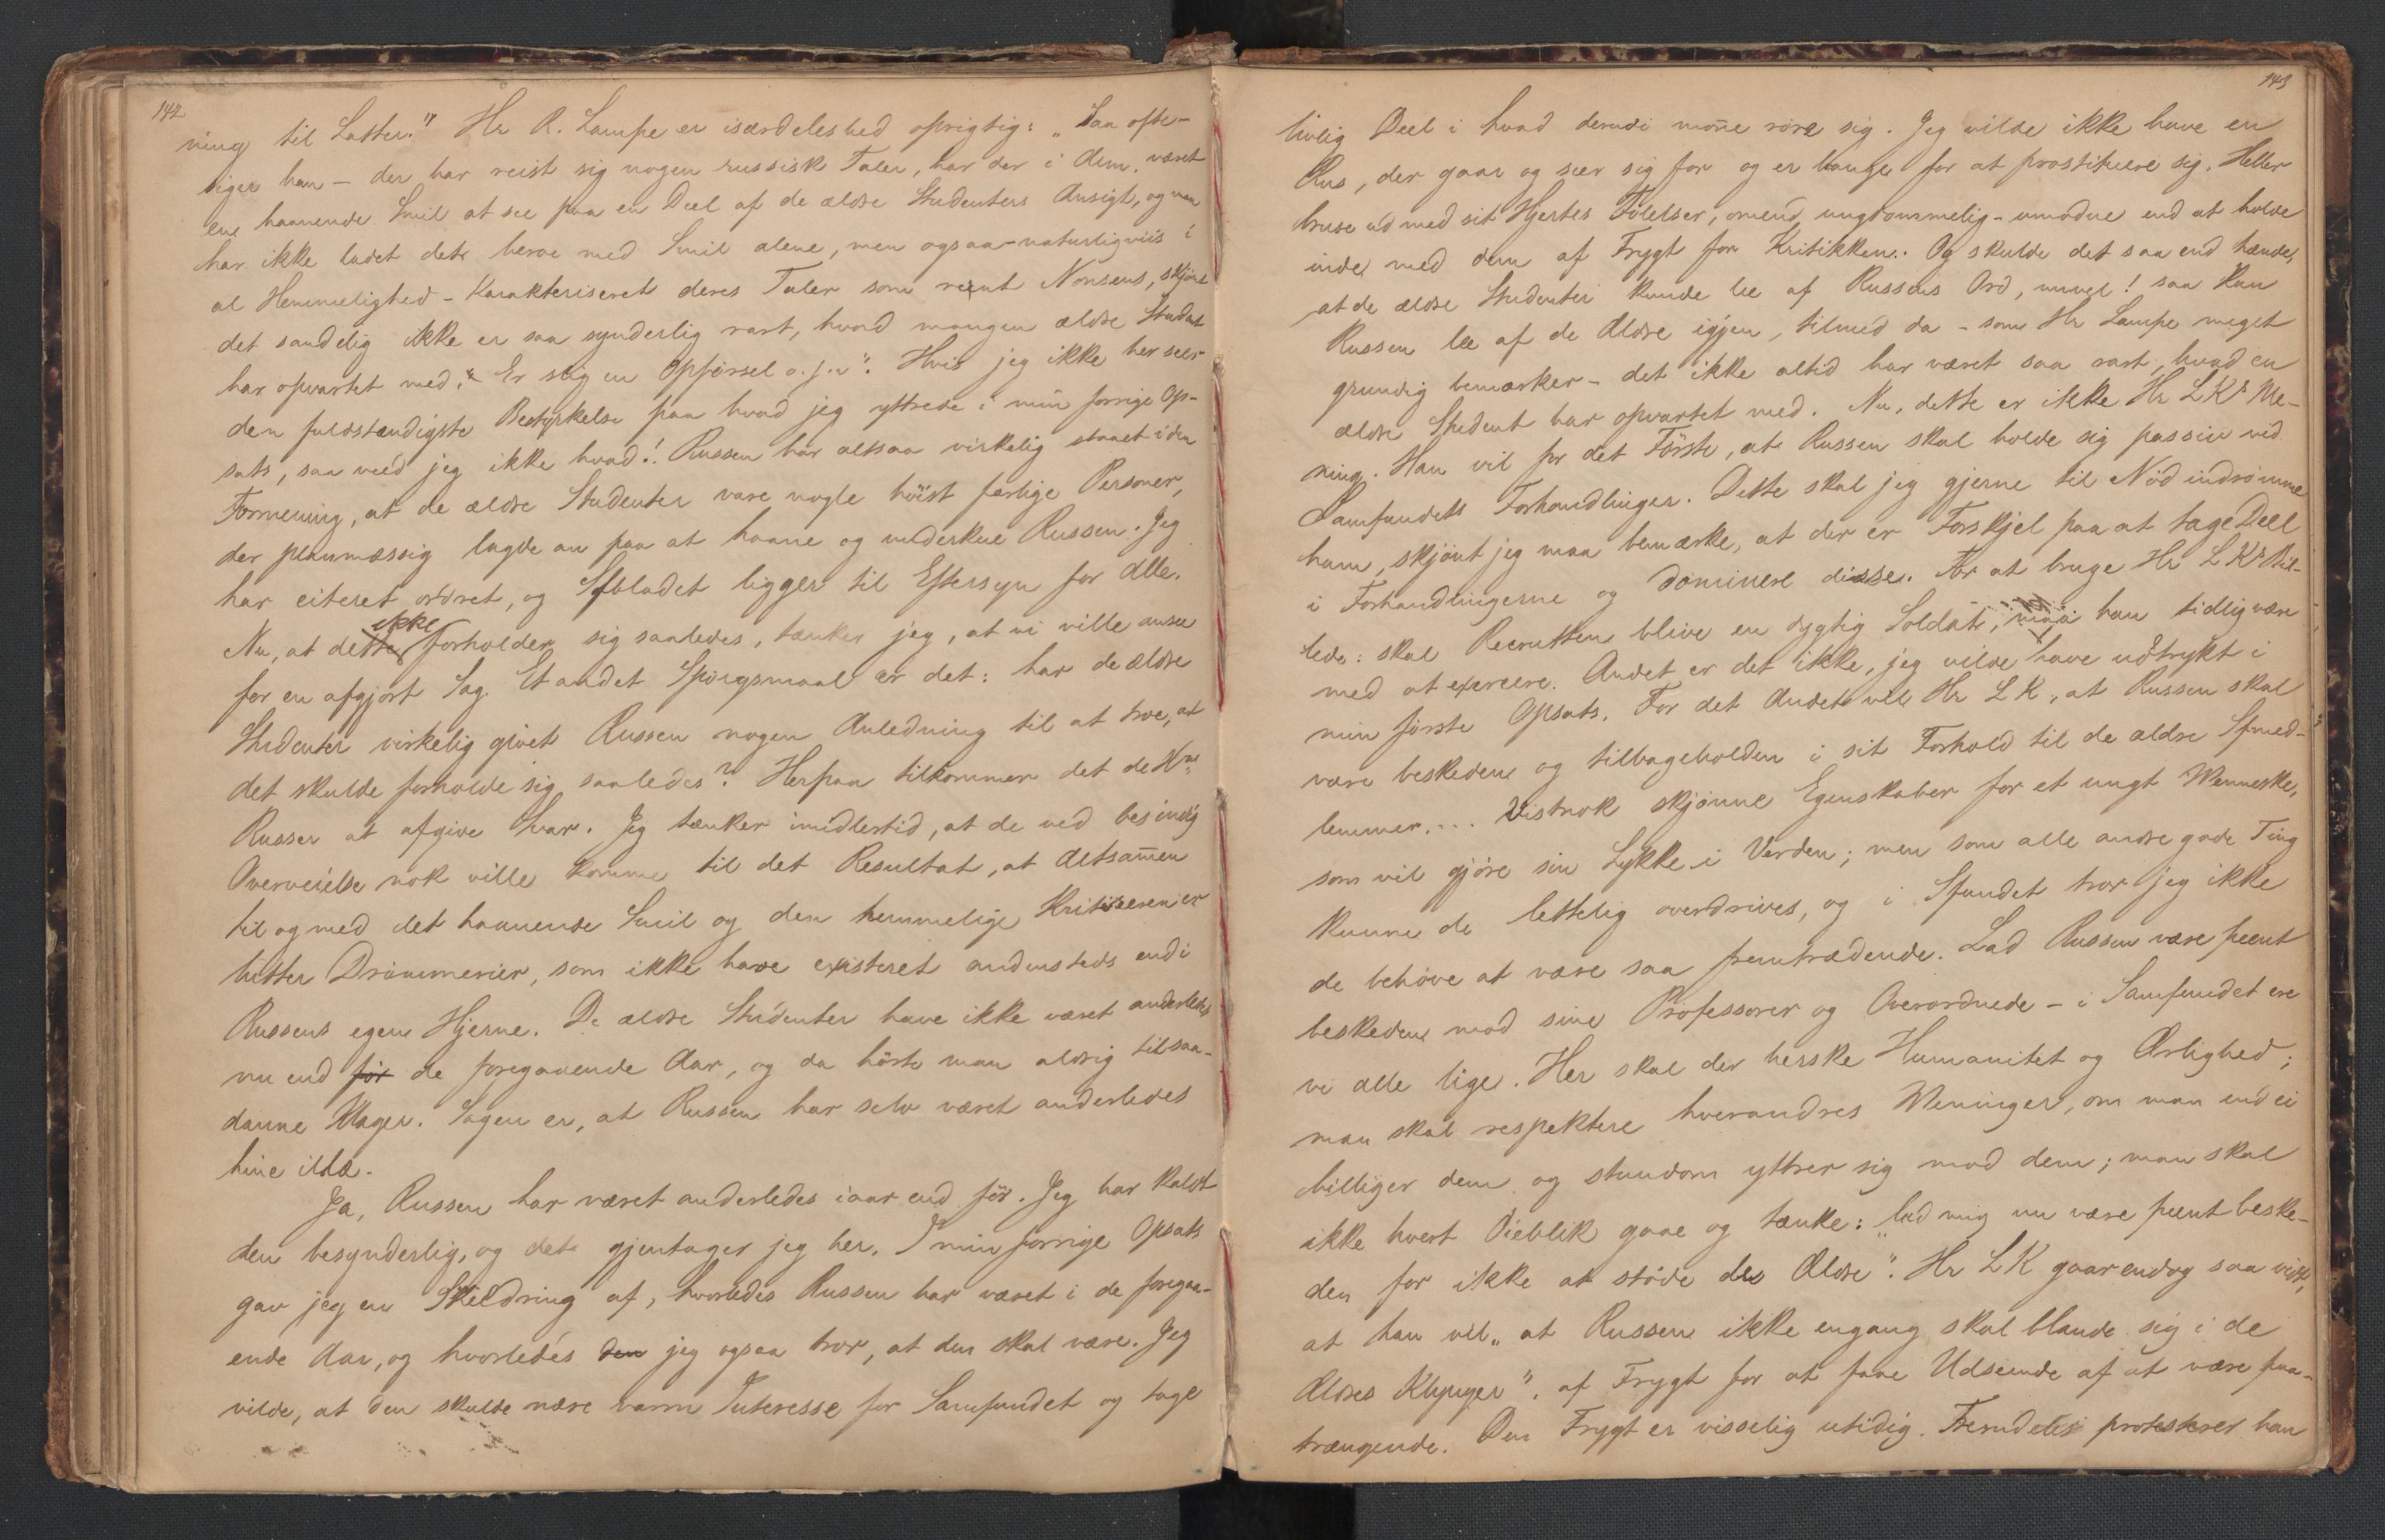 142
ning til Latter." Hr R. Lampe er isærdeleshed oprigtig: „Saa ofte –
siger han – der har reist sig nogen russisk Taler, har der i Alm. været
en haanende Smil at see paa en Deel af de ældre Studenters Ansigt, og man
har ikke ladet det beroe med Smil alene, men ogsaa – naturligviis i
al Hemmelighed – karakteriseret deres Taler som reent Nonsens, skjönt
det sandelig ikke er saa synderlig rart, hvad mangen ældre Student
har opvartet med." Er slig en Opførsel o.s.v." Hvis jeg ikke her seer
den fuldstændigste Bestyrkelse paa hvad jeg yttrede i min forrige Op-
sats, saa veed jeg ikke hvad! Russen har altsaa virkelig staaet i den
Formening, at de ældre Studenter vare nogle höist farlige Personer,
der planmæssig lagde an paa at haane og underkue Russen. Jeg
har citeret ordret, og Sfbladet ligger til Eftersyn for Alle.
Nu, at dette ikke forholder sig saaledes, tænker jeg, at vi ville ansee
for en afgjort Sag. Et andet Spörgsmaal er det: har de ældre
Studenter virkelig givet Russen nogen Anledning til at troe, at
det skulde forholde sig saaledes? Herpaa tilkommer det de Hrr
Russer at afgive Svar. Jeg tænker imidlertid, at de ved besindig
Overveielse nok ville komme til det Resultat, at Altsam̄en
til og med det haanende Smil og den hemmelige Kritiseren er
lutter Drömmerier, som ikke have existeret andensteds end i
Russens egen Hjerne. De ældre Studenter have ikke været anderledes
nu end för de foregaaende Aar, og da hörte man aldrig til saa-
danne Klager. Sagen er, at Russen har selv været anderledes
hine ilde.
Ja, Russen har været anderledes iaar end för. Jeg har kaldt
den besynderlig, og det gjentager jeg her. I min forrige Opsats
gav jeg en Skildring af, hvorledes Russen har været i de foregaa-
ende Aar, og hvorledes den jeg ogsaa tror, at den skal være. Jeg
vilde, at den skulde nære varm Interesse for Samfundet og tage
143
livlig Deel i hvad derudi mon̄e röre sig. Jeg vilde ikke have en
Rus, der gaar og seer sig for og er bange for at prostituere sig. Heller
bruse ud med sit Hjertes Fölelser, omend ungdommelig-umodne end at holde
inde med dem af Frygt for Kritikken. Og skulde det saa end hænde,
at de ældre Studenter kunde lee af Russens Ord, nuvel! saa kan
Russen lee af de Ældre igjen, tilmed da – som Hr Lampe meget
grundig bemærker – det ikke altid har været saa rart, hvad en
ældre Student har opvartet med. Nu, dette er ikke Hr L Ks Me-
ning. Han vil for det Förste, at Russen skal holde sig passiv ved
Samfundets Forhandlinger. Dette skal jeg gjerne til Nöd indrömme
ham, skjönt jeg maa bemærke, at der er Forskjel paa at tage Deel
i Forhandlingerne og dominere disse. For at bruge Hr L Ks Bil-
lede: skal Recrutten blive en dygtig Soldat, maa han tidlig være
med at exercere. Andet er det ikke, jeg vilde have udtrykt i
min förste Opsats. For det Andet vil Hr L K, at Russen skal
være beskeden og tilbageholden i sit Forhold til de ældre Sfmed-
lemmer.... Vistnok skjönne Egenskaber for et ungt Menneske,
som vil gjöre sin Lykke i Verden; men som alle andre gode Ting
kunne de lettelig overdrives, og i Sfundet tror jeg ikke
de behöve at være saa fremtrædende. Lad Russen være pænt
beskeden mod sine Professorer og Overordnede – i Samfundet ere
vi alle lige. Her skal der herske Humanitet og Ærlighed;
man skal respektere hverandres Meninger, om man end ei
billiger dem og stundom yttrer sig mod dem; man skal
ikke hvert Öieblik gaae og tænke: „lad mig nu være pænt beske-
den for ikke at støde de Ældre". Hr L K gaar endog saa vidt,
at han vil „at Russen ikke engang skal blande sig i de
Ældres Klynger", af Frygt for at faae Udseende af at være paa-
trængende. Den Frygt er visselig utidig. Fremdeles protesterer han